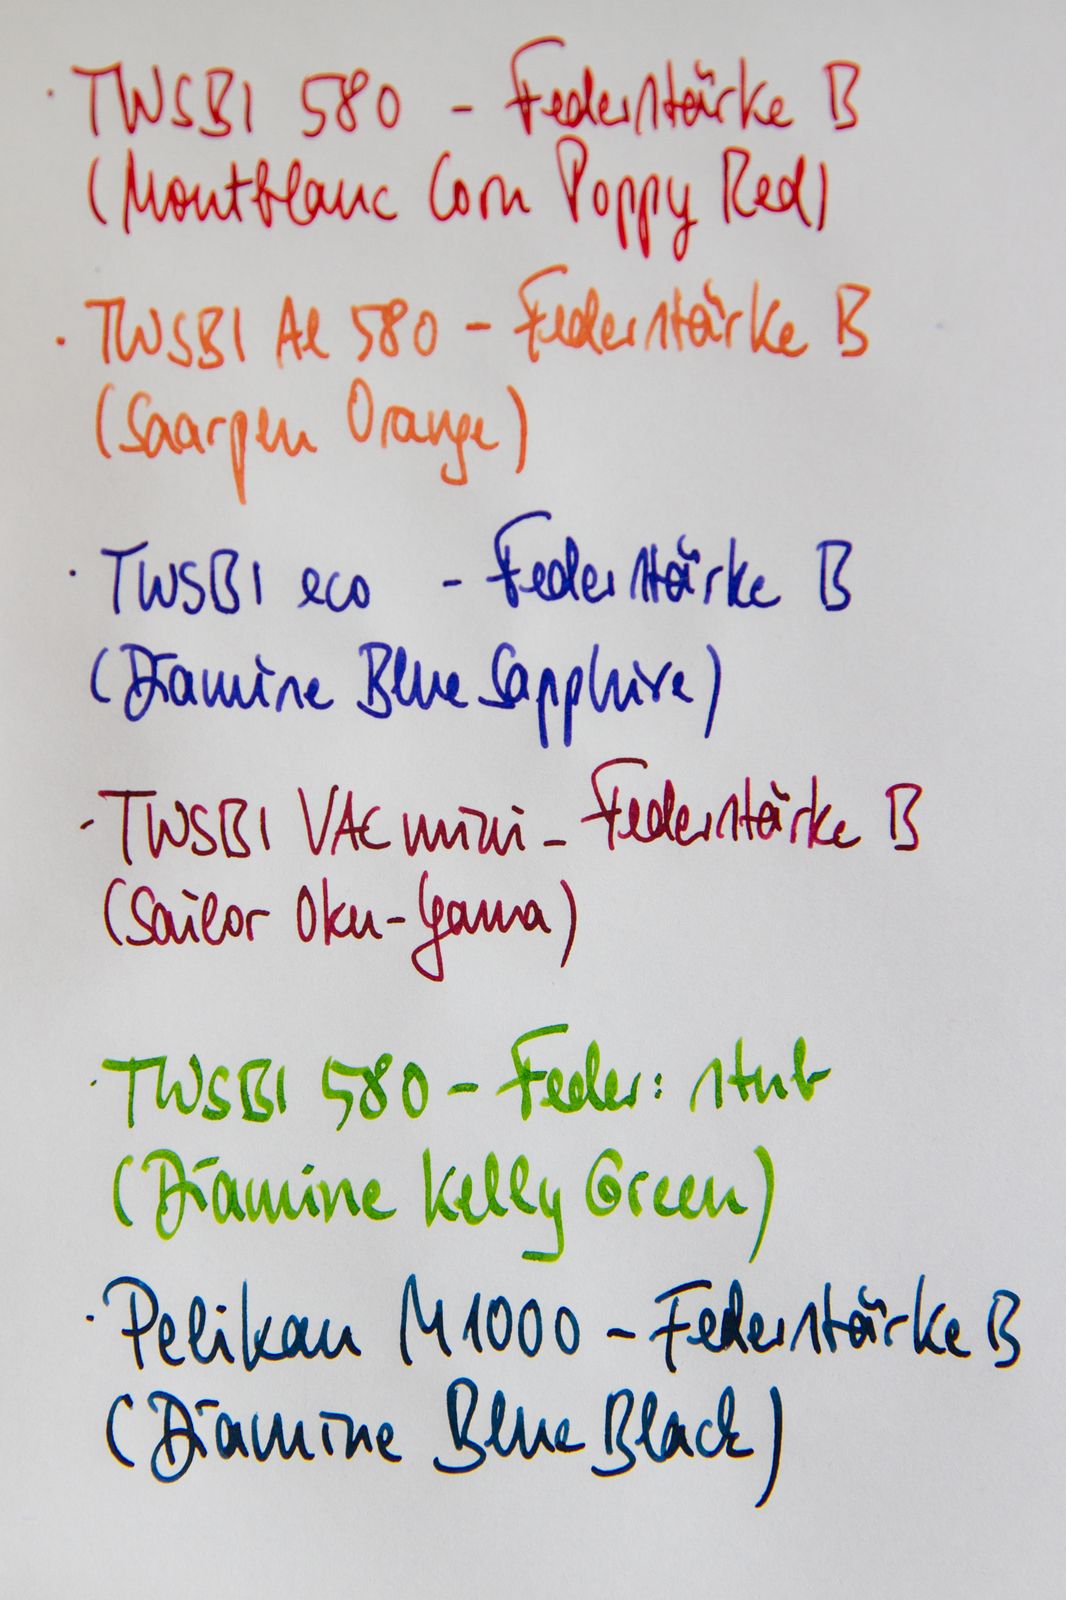 · TWSBI 580 - Federstärke B
(Montblanc Corn Poppy Red)
· TWSBI Al 580 - Federstärke B
(Saarpen Orange)
· TWSBI eco - Federstärke B
(Diamine Blue Sapphire)
- TWSBI VAC mini - Federstärke B
(Sailor Oku-Yama)
· TWSBI 580 - Feder: stub
(Diamine Kelly Green)
· Pelikan M1000 - Federstärke B
(Diamine Blue Black)